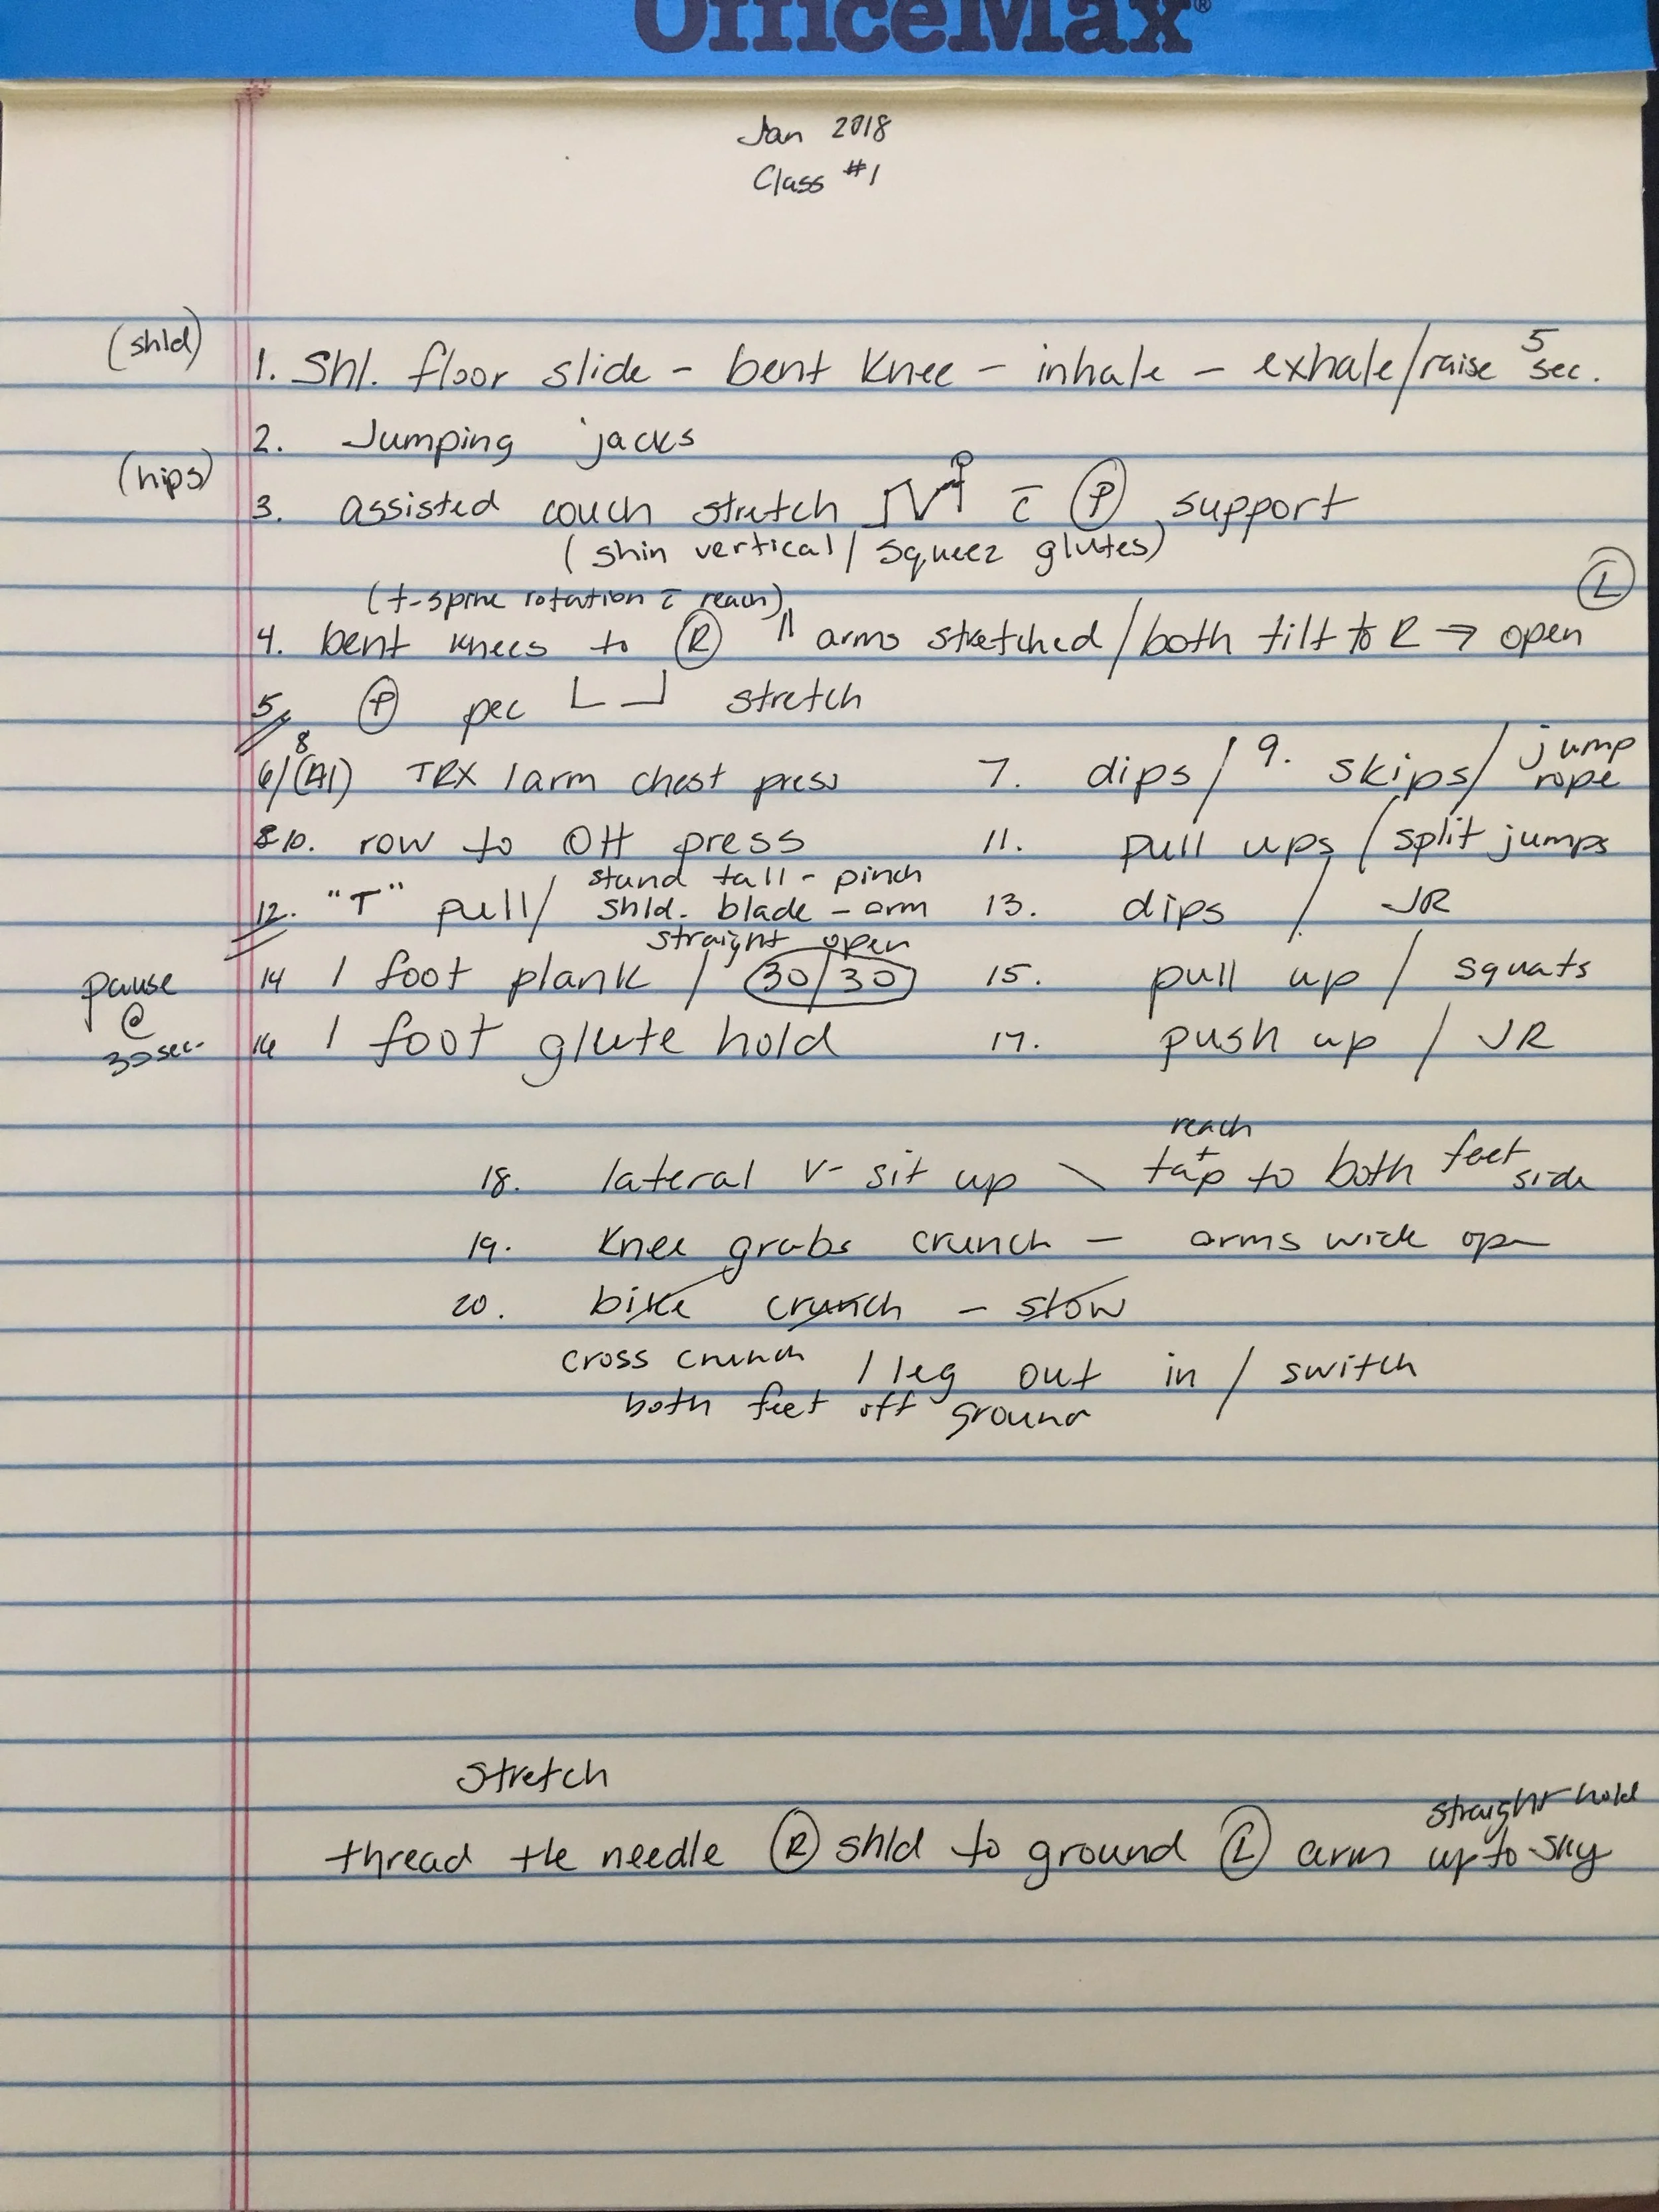 OfficeMax®
Jan 2018
Class #1
(shld) 1. Shl. floor slide - bent knee - inhale - exhale/raise 5 sec.
2. Jumping jacks
(hips)
3. assisted couch stretch c̄ Ⓟ support
(shin vertical / squeez glutes)
(t-spine rotation c̄ reach) Ⓛ
4. bent knees to Ⓡ || arms stretched / both tilt to R → open
5. Ⓟ pec stretch
6/8 (A1) TRX 1 arm chest press 7. dips / 9. skips / jump rope
8 10. row to OH press 11. pull ups / split jumps
12. "T" pull / stand tall - pinch shld. blade - arm straight open 13. dips / JR
14 1 foot plank / 30/30 15. pull up / squats
pause @ 30 sec.
16 1 foot glute hold 17. push up / JR
18. lateral V- sit up \ reach + tap to both feet side
19. Knee grabs crunch - arms wide open
20. bike crunch - slow
cross crunch 1 leg out in / switch
both feet off ground
Stretch
thread the needle Ⓡ shld to ground Ⓛ arm straight hold up to sky